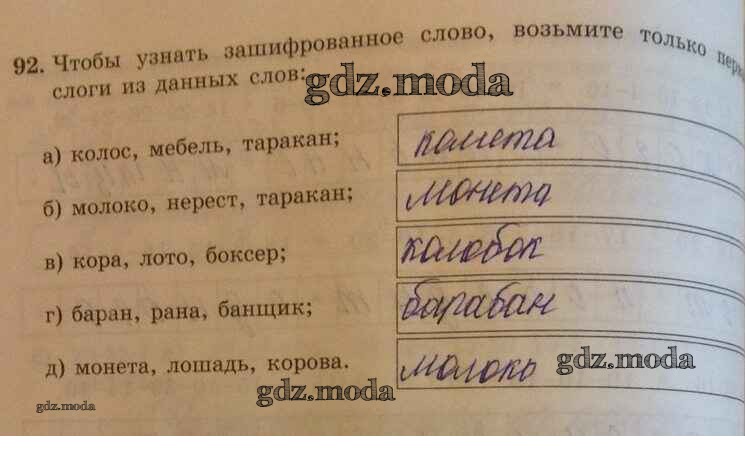 92. Чтобы узнать зашифрованное слово, возьмите только
слоги из данных слов:
gdz.moda
а) колос, мебель, таракан; комета
б) молоко, нерест, таракан; монета
в) кора, лото, боксер; колобок
г) баран, рана, банщик; барабан
д) монета, лошадь, корова. молоко
gdz.moda
gdz.moda
gdz.moda